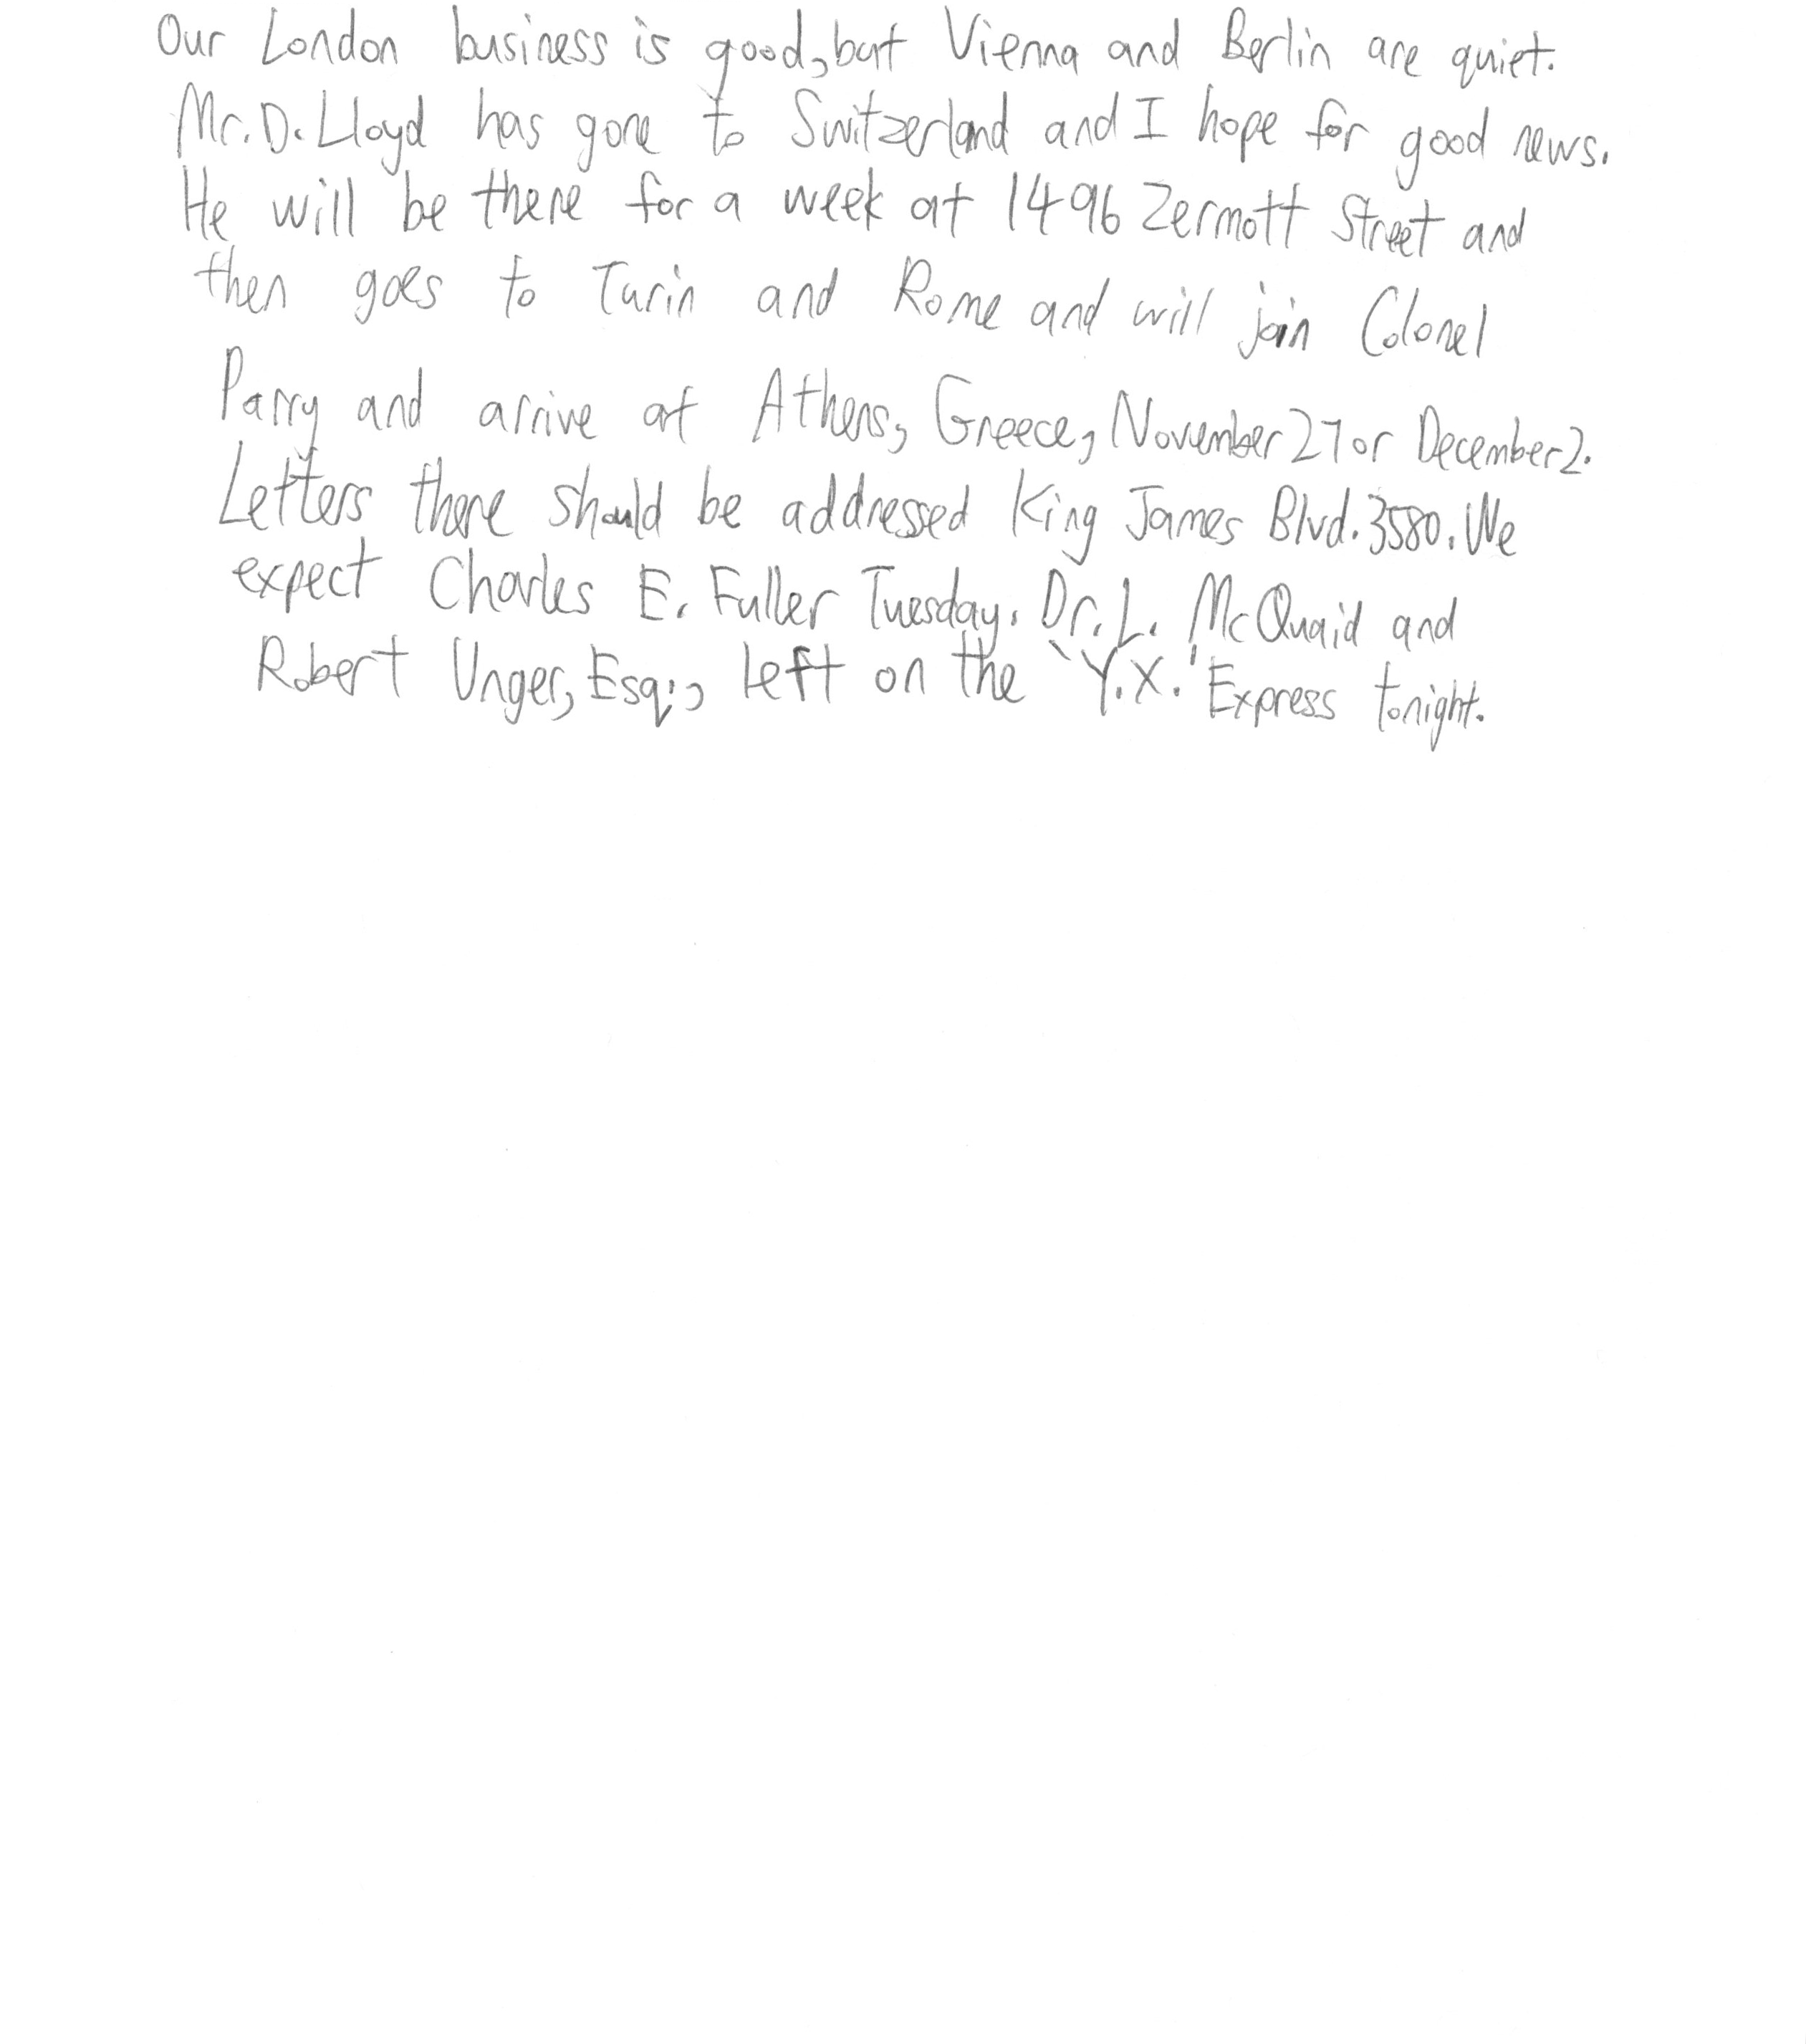 Our London business is good, but Vienna and Berlin are quiet.
Mr. D. Lloyd has gone to Switzerland and I hope for good news.
He will be there for a week at 1496 Zermott Street and
then goes to Turin and Rome and will join Colonel
Parry and arrive at Athens, Greece, November 27 or December 2.
Letters there should be addressed King James Blvd. 3580. We
expect Charles E. Fuller Tuesday. Dr. L. McQuaid and
Robert Unger, Esq., left on the 'Y.X.' Express tonight.